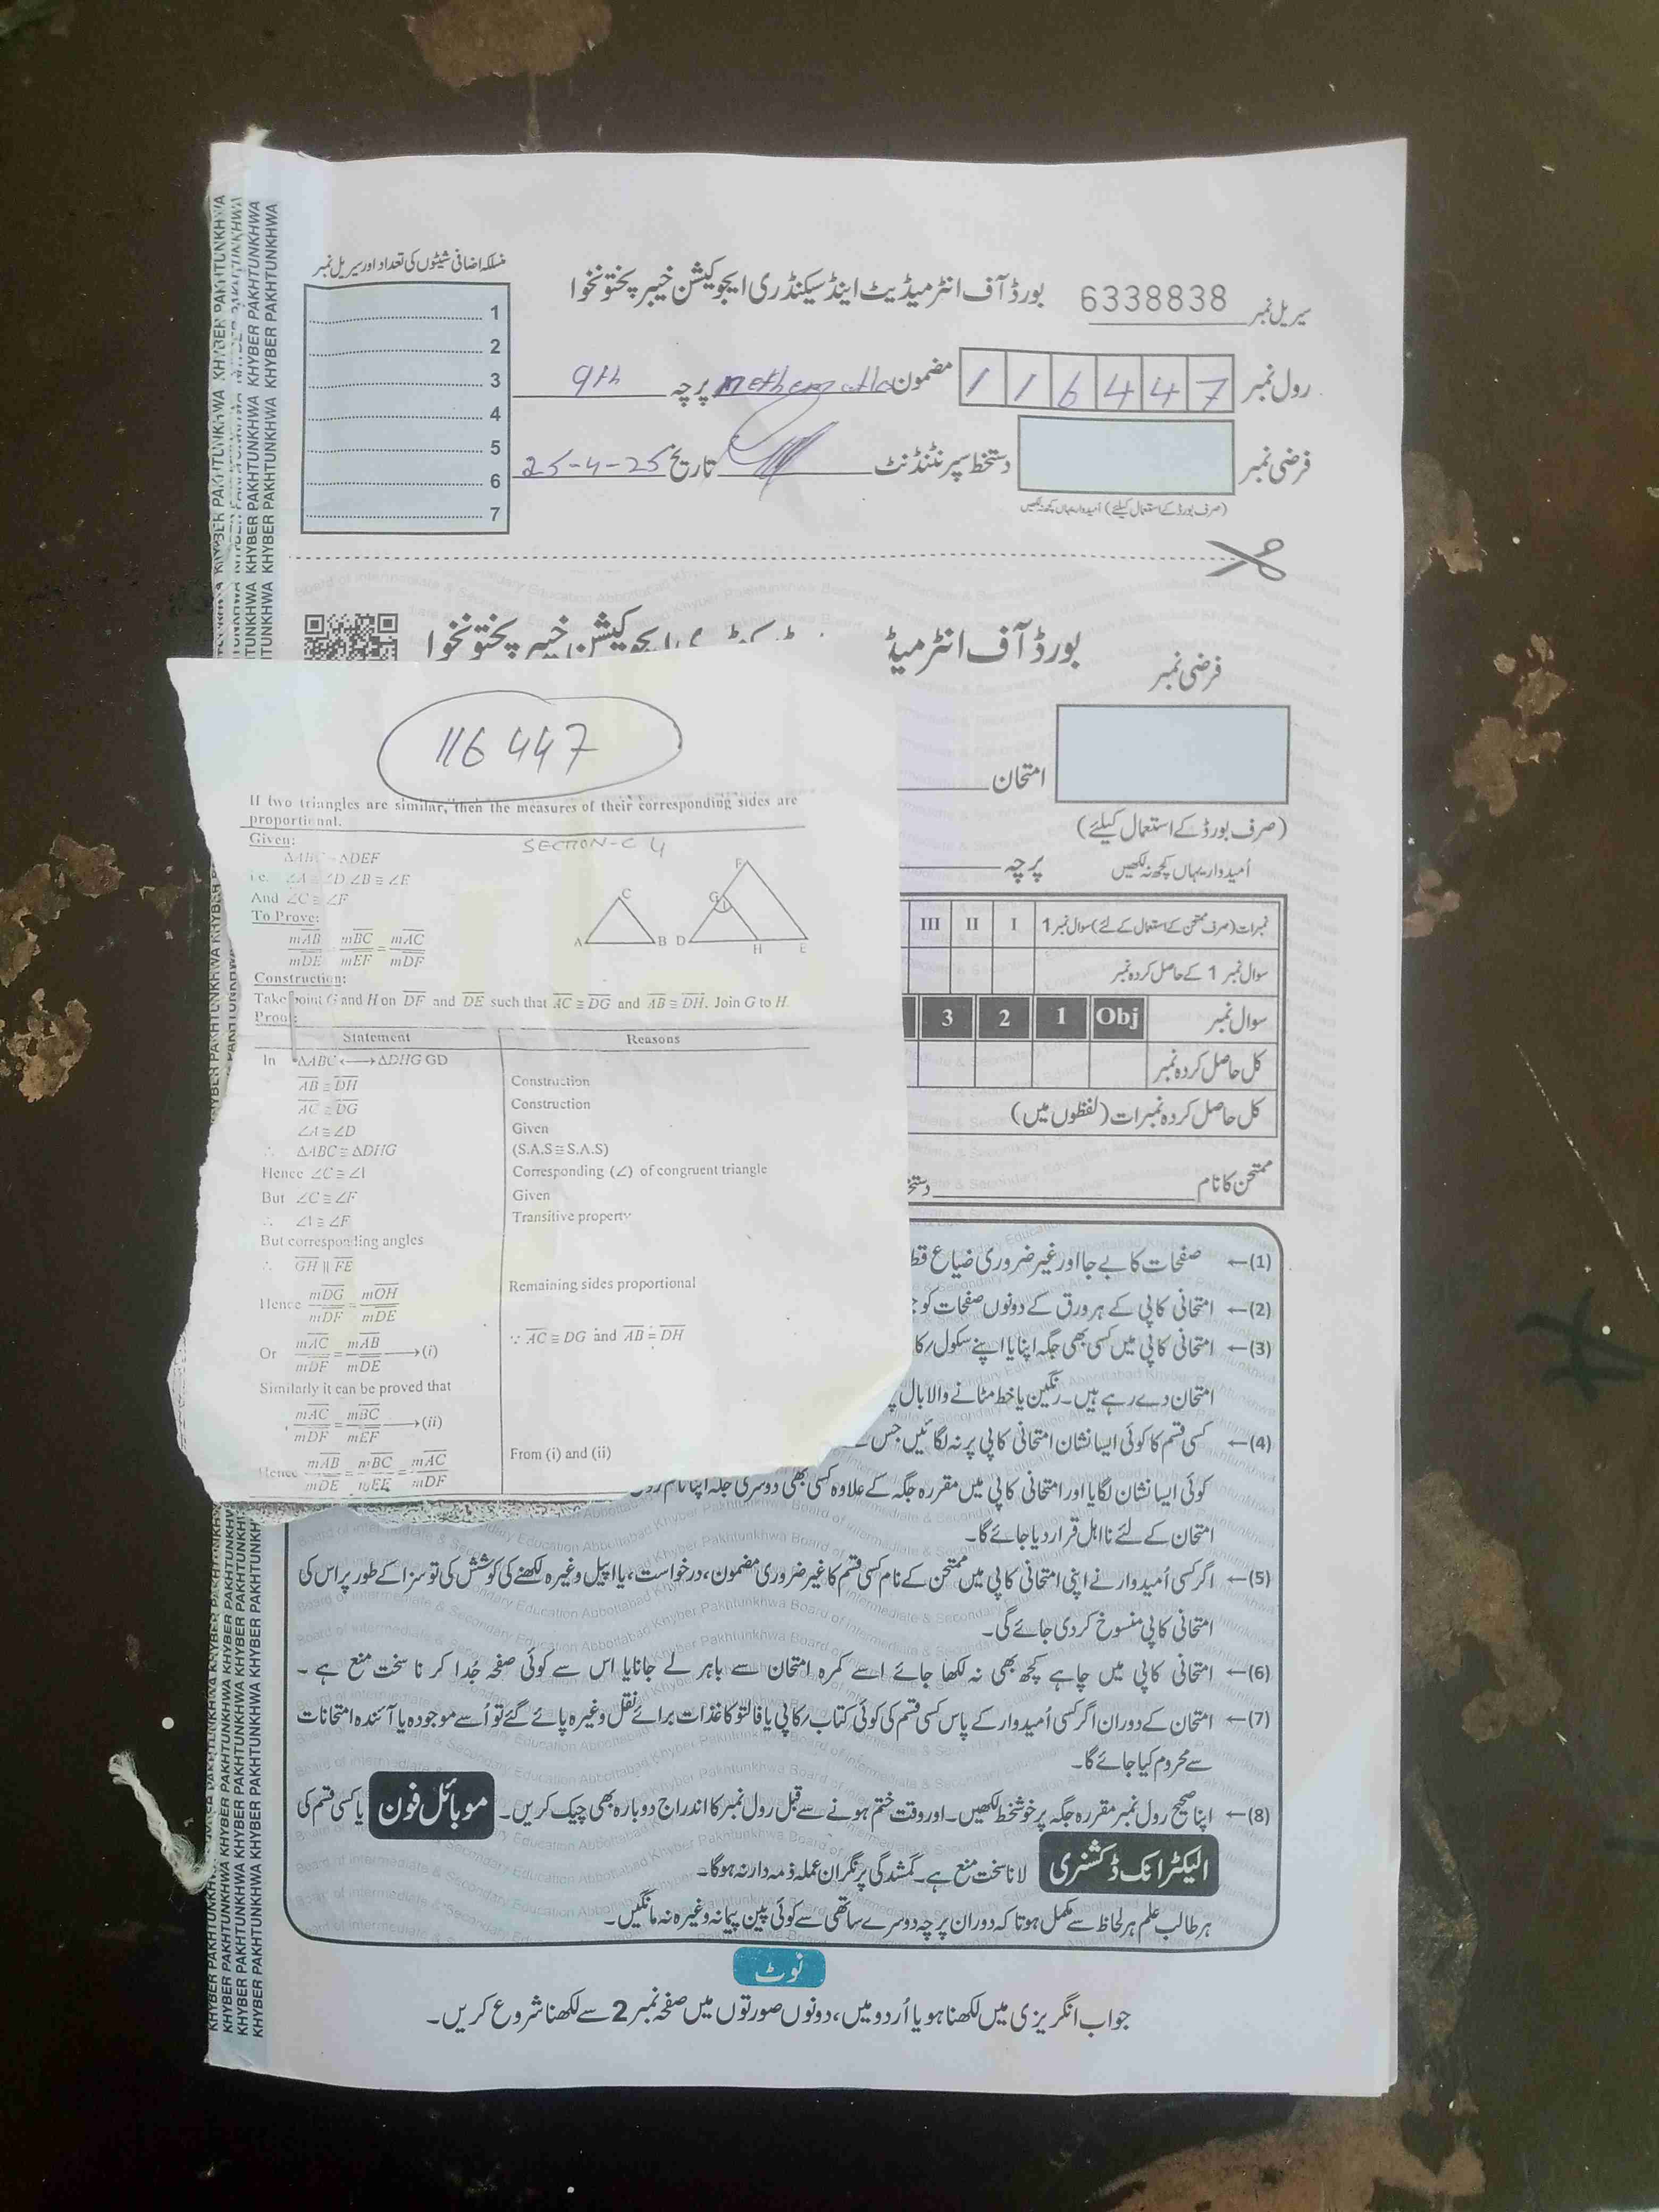 منسلکہ اضافی شیٹوں کی تعداد اور سیریل نمبر
1
2
3
4
5
6
7
سیریل نمبر 6338838
بورڈ آف انٹرمیڈیٹ اینڈ سیکنڈری ایجوکیشن خیبر پختونخوا
رول نمبر 1 1 6 4 4 7 مضمون پرچہ 9th
فرضی نمبر دستخط سپرنٹنڈنٹ تاریخ 25-4-25
(صرف بورڈ کے استعمال کیلئے) امیدوار یہاں کچھ نہ لکھیں
بورڈ آف انٹرمیڈ
ایجوکیشن خیبر پختونخوا
فرضی نمبر
امتحان
(صرف بورڈ کے استعمال کیلئے)
اُمیدوار یہاں کچھ نہ لکھیں
پرچہ
نمبرات (صرف ممتحن کے استعمال کے لئے) سوال نمبر 1 I II III
سوال نمبر 1 کے حاصل کردہ نمبر
سوال نمبر Obj 1 2 3
کل حاصل کردہ نمبر
کل حاصل کردہ نمبرات (لفظوں میں)
ممتحن کا نام
116447
If two triangles are similar, then the measures of their corresponding sides are
proportional.
SECTION-C 4
Given:
ΔABC ΔDEF
i.e. ∠A ≅ ∠D ∠B ≅ ∠E
And ∠C ≅ ∠F
To Prove:
mAB/mDE mBC/mEF = mAC/mDF
A B C D E F G H
Construction:
Take point G and H on DF and DE such that AC ≅ DG and AB ≅ DH. Join G to H.
Proof:
Statement Reasons
In ΔABC ⟷ ΔDHG GD
AB ≅ DH Construction
AC ≅ DG Construction
∠A ≅ ∠D Given
∴ ΔABC ≅ ΔDHG (S.A.S ≅ S.A.S)
Hence ∠C ≅ ∠1 Corresponding (∠) of congruent triangle
But ∠C ≅ ∠F Given
∴ ∠1 ≅ ∠F Transitive property
But corresponding angles
∴ GH || FE
Hence mDG/mDF = mOH/mDE Remaining sides proportional
Or mAC/mDF = mAB/mDE ⟶(i) ∵ AC ≅ DG and AB = DH
Similarly it can be proved that
mAC/mDF = mBC/mEF ⟶(ii)
Hence mAB/mDE = mBC/mEF = mAC/mDF From (i) and (ii)
(1)← صفحات کا بے جا اور غیر ضروری ضیاع
(2)← امتحانی کاپی کے ہر ورق کے دونوں صفحات کو
(3)← امتحانی کاپی میں کسی بھی جگہ اپنا یا اپنے سکول/کا
امتحان دے رہے ہیں۔ رنگین یا خط مٹانے والا بال
(4)← کسی قسم کا کوئی ایسا نشان امتحانی کاپی پر نہ لگائیں جس
کوئی ایسا نشان لگایا اور امتحانی کاپی میں مقررہ جگہ کے علاوہ کسی بھی دوسری جگہ اپنا نام
امتحان کے لئے نا اہل قرار دیا جائے گا۔
(5)← اگر کسی اُمیدوار نے اپنی امتحانی کاپی میں ممتحن کے نام کسی قسم کا غیر ضروری مضمون، درخواست، یا اپیل وغیرہ لکھنے کی کوشش کی تو سزا کے طور پر اس کی
امتحانی کاپی منسوخ کر دی جائے گی۔
(6)← امتحانی کاپی میں چاہے کچھ بھی نہ لکھا جائے اسے کمرہ امتحان سے باہر لے جانا یا اس سے کوئی صفحہ جُدا کرنا سخت منع ہے۔
(7)← امتحان کے دوران اگر کسی اُمیدوار کے پاس کسی قسم کی کوئی کتاب/کاپی یا فالتو کاغذات برائے نقل وغیرہ پائے گئے تو اُسے موجودہ یا آئندہ امتحانات
سے محروم کیا جائے گا۔
(8)← اپنا صحیح رول نمبر مقررہ جگہ پر خوشخط لکھیں۔ اور وقت ختم ہونے سے قبل رول نمبر کا اندراج دوبارہ بھی چیک کریں۔ موبائل فون یا کسی قسم کی
الیکٹرانک ڈکشنری لانا سخت منع ہے۔ گمشدگی پر نگران عملہ ذمہ دار نہ ہوگا۔
ہر طالب علم ہر لحاظ سے مکمل ہو تا کہ دوران پرچہ دوسرے ساتھی سے کوئی پین پیمانہ وغیرہ نہ مانگیں۔
نوٹ
جواب انگریزی میں لکھنا ہو یا اُردو میں، دونوں صورتوں میں صفحہ نمبر 2 سے لکھنا شروع کریں۔
KHYBER PAKHTUNKHWA KHYBER PAKHTUNKHWA KHYBER PAKHTUNKHWA